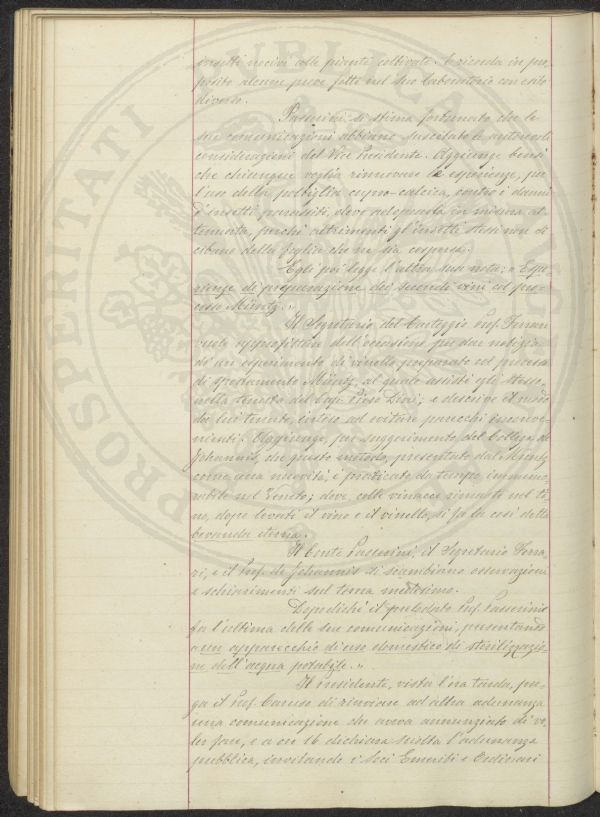 insetti nocivi alle piante coltivate. E ricorda in pro-
posito alcune prove fatte nel suo laboratorio con esito
diverso.
Passerini si stima fortunato che le
sue comunicazioni abbiano suscitato le autorevoli
considerazioni del Vice Presidente. Aggiunge bensì
che chiunque voglia rinnovare le esperienze, per
l'uso della poltiglia cupro-calcica, contro i danni
d'insetti parassiti, deve adoperarla in misura at-
tenuata, perchè altrimenti gl'insetti stessi non si
cibano della foglia che ne sia cospersa.
Egli poi legge l'altra sua nota: "Espe-
rienze di preparazione dei secondi vini col pro-
cesso Müntz."
Il Segretario del Carteggio Prof. Ferrari
vuole approfittare dell'occasione per dar notizia
di un esperimento di vinello preparato col processo
di spostamento Müntz, al quale assistè egli stesso,
nella tenuta del Cap. Piero; e descrive il modo
da lui tenuto, inteso ad evitare parecchi inconve-
nienti. Aggiunge, per suggerimento del Collega de
Johannis, che questo metodo, presentato dal Müntz
come una novità, è praticato da tempo immemo-
rabile nel Veneto; dove, colle vinacce rimaste nel ti-
no, dopo levati il vino e il vinello, si fa la così detta
bevanda eterna.
Il Conte Passerini, il Segretario Ferra-
ri, e il Prof. de Johannis si scambiano osservazioni
e schiarimenti sul tema medesimo.
Dopodichè il prelodato Prof. Passerini
fa l'ultima delle sue comunicazioni, presentando
"un apparecchio di uso domestico di sterilizzazio-
ne dell'acqua potabile."
Il Presidente, vista l'ora tarda, pre-
ga il Prof. Caruso di rinviare ad altra adunanza
una comunicazione che aveva annunziato di vo-
ler fare, e a ore 16 dichiara sciolta l'adunanza
pubblica, invitando i Soci Emeriti e Ordinari
PROSPERITATI PUBLICAE